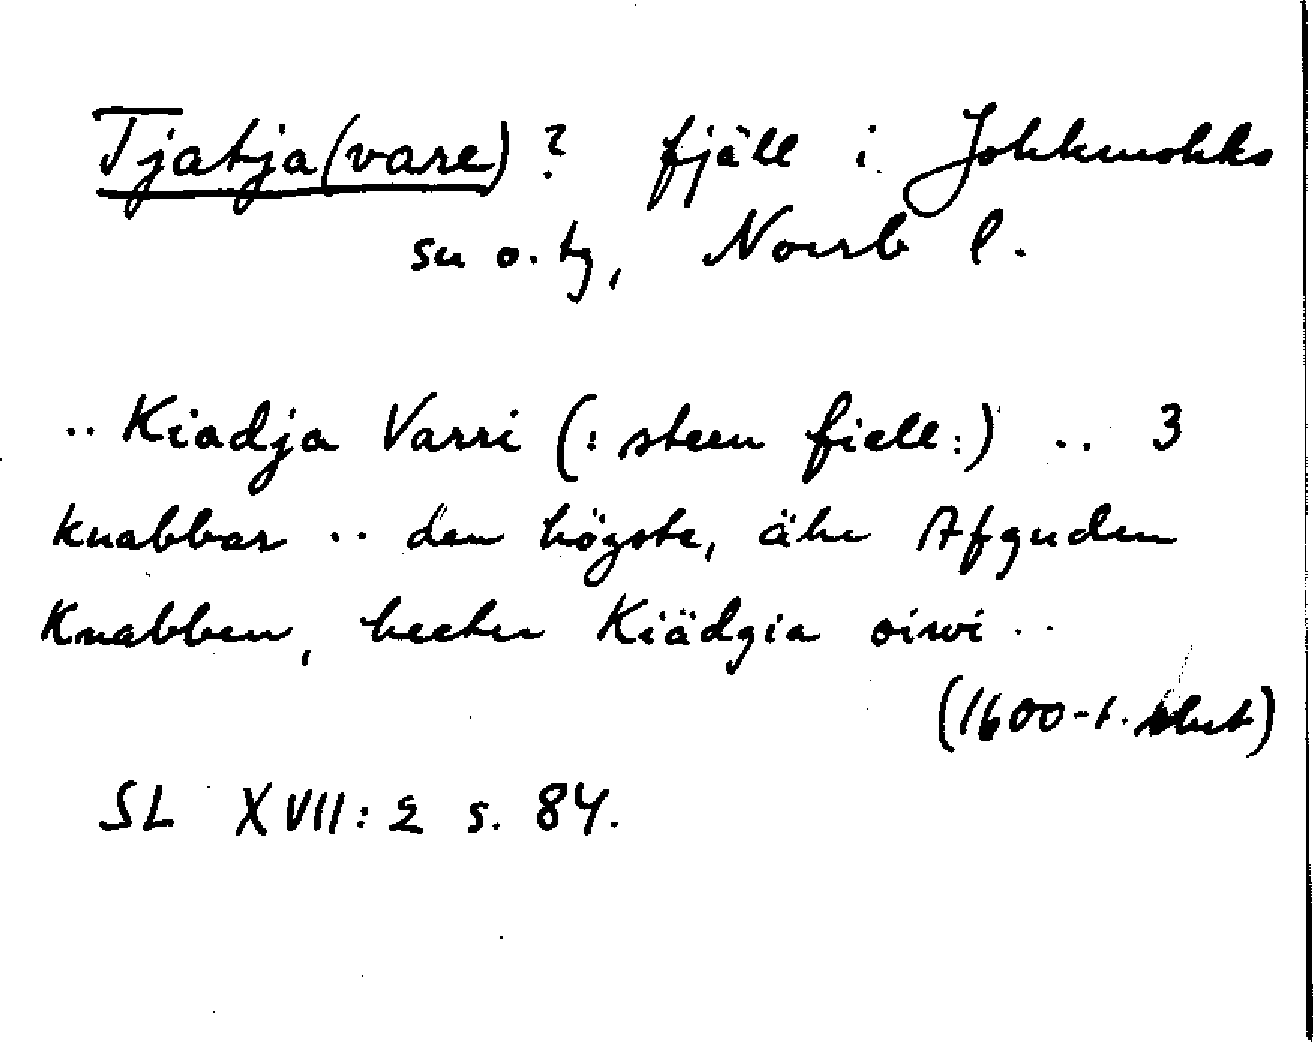 Tjatja(vare)? fjäll i Jokkmokks
sn o. tg, Norrb l.
.. Kiadja Varri (: steen fiell:) .. 3
knabbar .. den högste, ähr Afguden
Knabben, heeter Kiädgia oiwi ..
(1600-t. slut)
SL XVII: 2 s. 84.